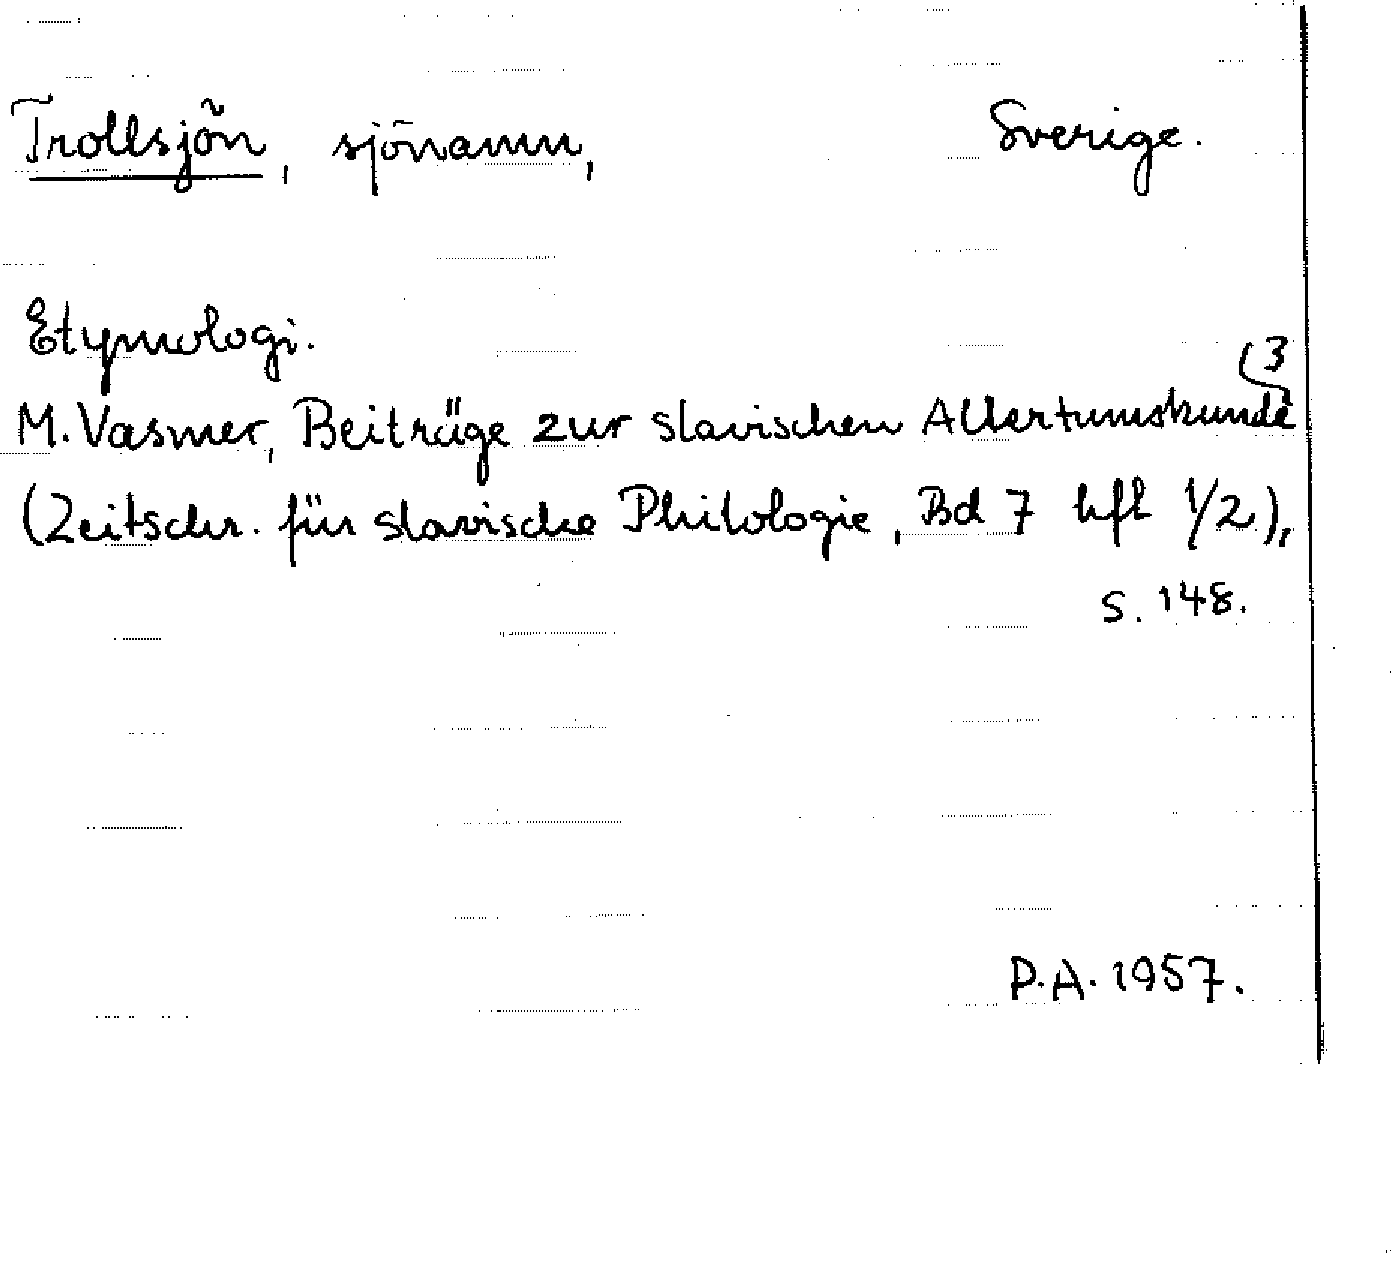 Trollsjön, sjönamn, Sverige.
Etymologi.
M. Vasmer, Beiträge zur slavischen Altertumskunde 3
(Zeitschr. für slavische Philologie, Bd 7 hft 1/2),
s. 148.
P.A. 1957.